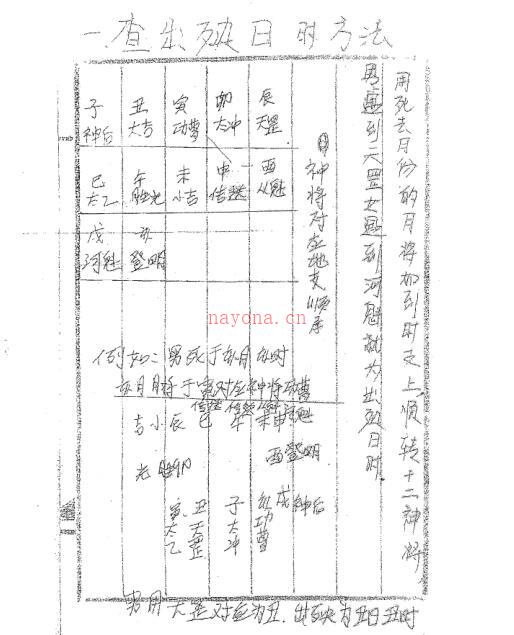 一.查出殃日时方法
用死去月份的月将加到时支上顺转十二神将
男遇到天罡女遇到河魁就为出殃日时
神将对应地支顺序
子 丑 寅 卯 辰
神后 大吉 功曹 太冲 天罡
巳 午 未 申 酉
太乙 胜光 小吉 传送 从魁
戌 亥
河魁 登明
nayona.cn
例如：男死于亥月亥时
亥月月将于寅对应神将功曹
辰 巳 午 未
小吉 传送
酉登明
卯
胜光
寅 丑 子 亥 戌
太乙 天罡 太冲 功曹 神后
男用天罡对应为丑.出殃为丑日丑时